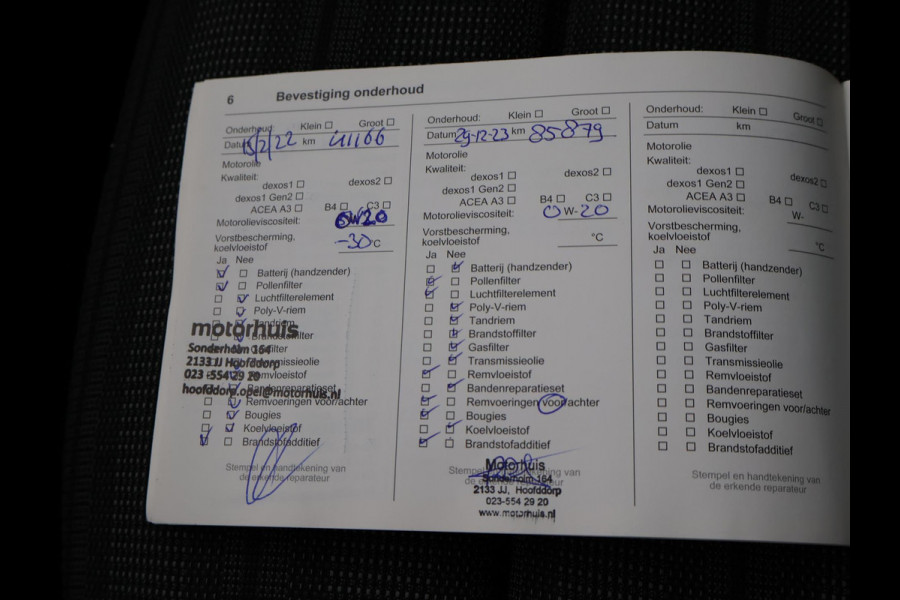 6 Bevestiging onderhoud
Onderhoud Klein ☐ Groot ☐
Datum 15/2/22 km 41166
Motorolie
Kwaliteit:
dexos1 ☐ dexos2 ☐
dexos1 Gen2 ☐
ACEA A3 ☐ B4 ☐ C3 ☐
Motorolieviscositeit: 0W20
Vorstbescherming,
koelvloeistof -30°C
Ja Nee
Batterij (handzender)
Pollenfilter
Luchtfilterelement
Poly-V-riem
Tandriem
motorhuis
Sonderholm 164
2133 JJ Hoofddorp
023 -554 29 20
hoofddorp.opel@motorhuis.nl
Remvloeistof
Bandenreparatieset
Remvoeringen voor/achter
Bougies
Koelvloeistof
Brandstofadditief
Stempel en handtekening van
de erkende reparateur
Onderhoud: Klein ☐ Groot ☐
Datum 29-12-23 km 85879
Motorolie
Kwaliteit:
dexos1 ☐ dexos2 ☐
dexos1 Gen2 ☐
ACEA A3 ☐ B4 ☐ C3 ☐
Motorolieviscositeit: 0W-20
Vorstbescherming,
koelvloeistof °C
Ja Nee
Batterij (handzender)
Pollenfilter
Luchtfilterelement
Poly-V-riem
Tandriem
Brandstoffilter
Gasfilter
Transmissieolie
Remvloeistof
Bandenreparatieset
Remvoeringen voor/achter
Bougies
Koelvloeistof
Brandstofadditief
Motorhuis
Sonderholm 164
2133 JJ, Hoofddorp
023-554 29 20
www.motorhuis.nl
Onderhoud: Klein ☐ Groot ☐
Datum km
Motorolie
Kwaliteit:
dexos1 ☐ dexos2 ☐
dexos1 Gen2 ☐
ACEA A3 ☐ B4 ☐ C3 ☐
Motorolieviscositeit: W-
Vorstbescherming,
koelvloeistof °C
Ja Nee
Batterij (handzender)
Pollenfilter
Luchtfilterelement
Poly-V-riem
Tandriem
Brandstoffilter
Gasfilter
Transmissieolie
Remvloeistof
Bandenreparatieset
Remvoeringen voor/achter
Bougies
Koelvloeistof
Brandstofadditief
Stempel en handtekening van
de erkende reparateur